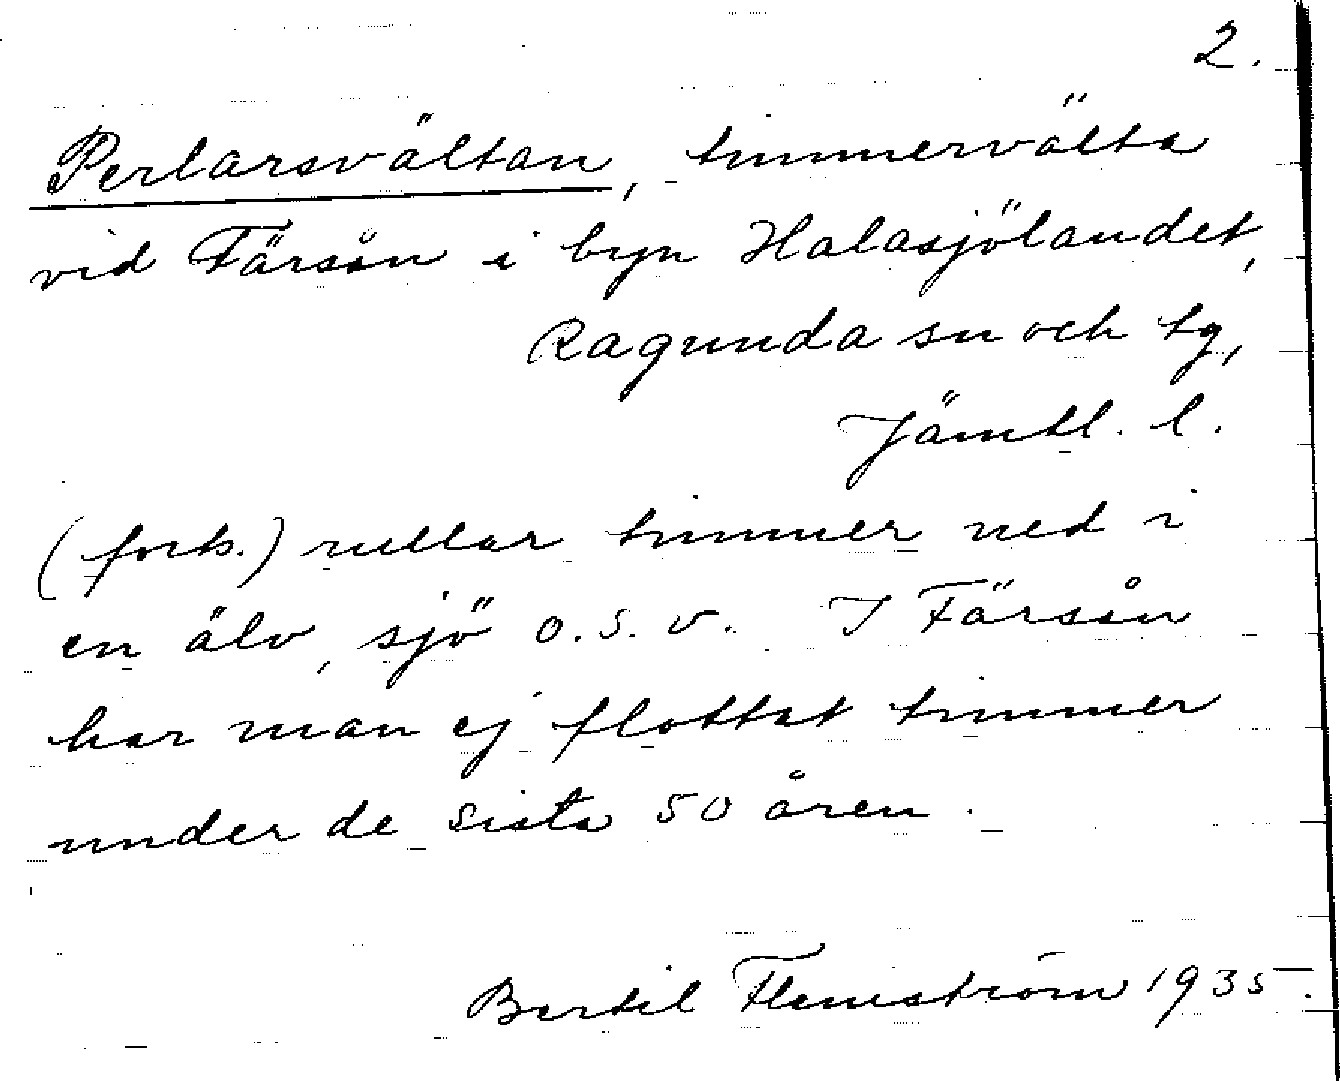 2.
Perlarsvältan, timmervälta
vid Färsån i byn Halasjölandet,
Ragunda sn och tg,
Jämtl. l.
(forts.) rullar timmer ned i
en älv, sjö o.s.v. I Färsån
har man ej flottat timmer
under de sista 50 åren.
Bertil Flemström 1935.